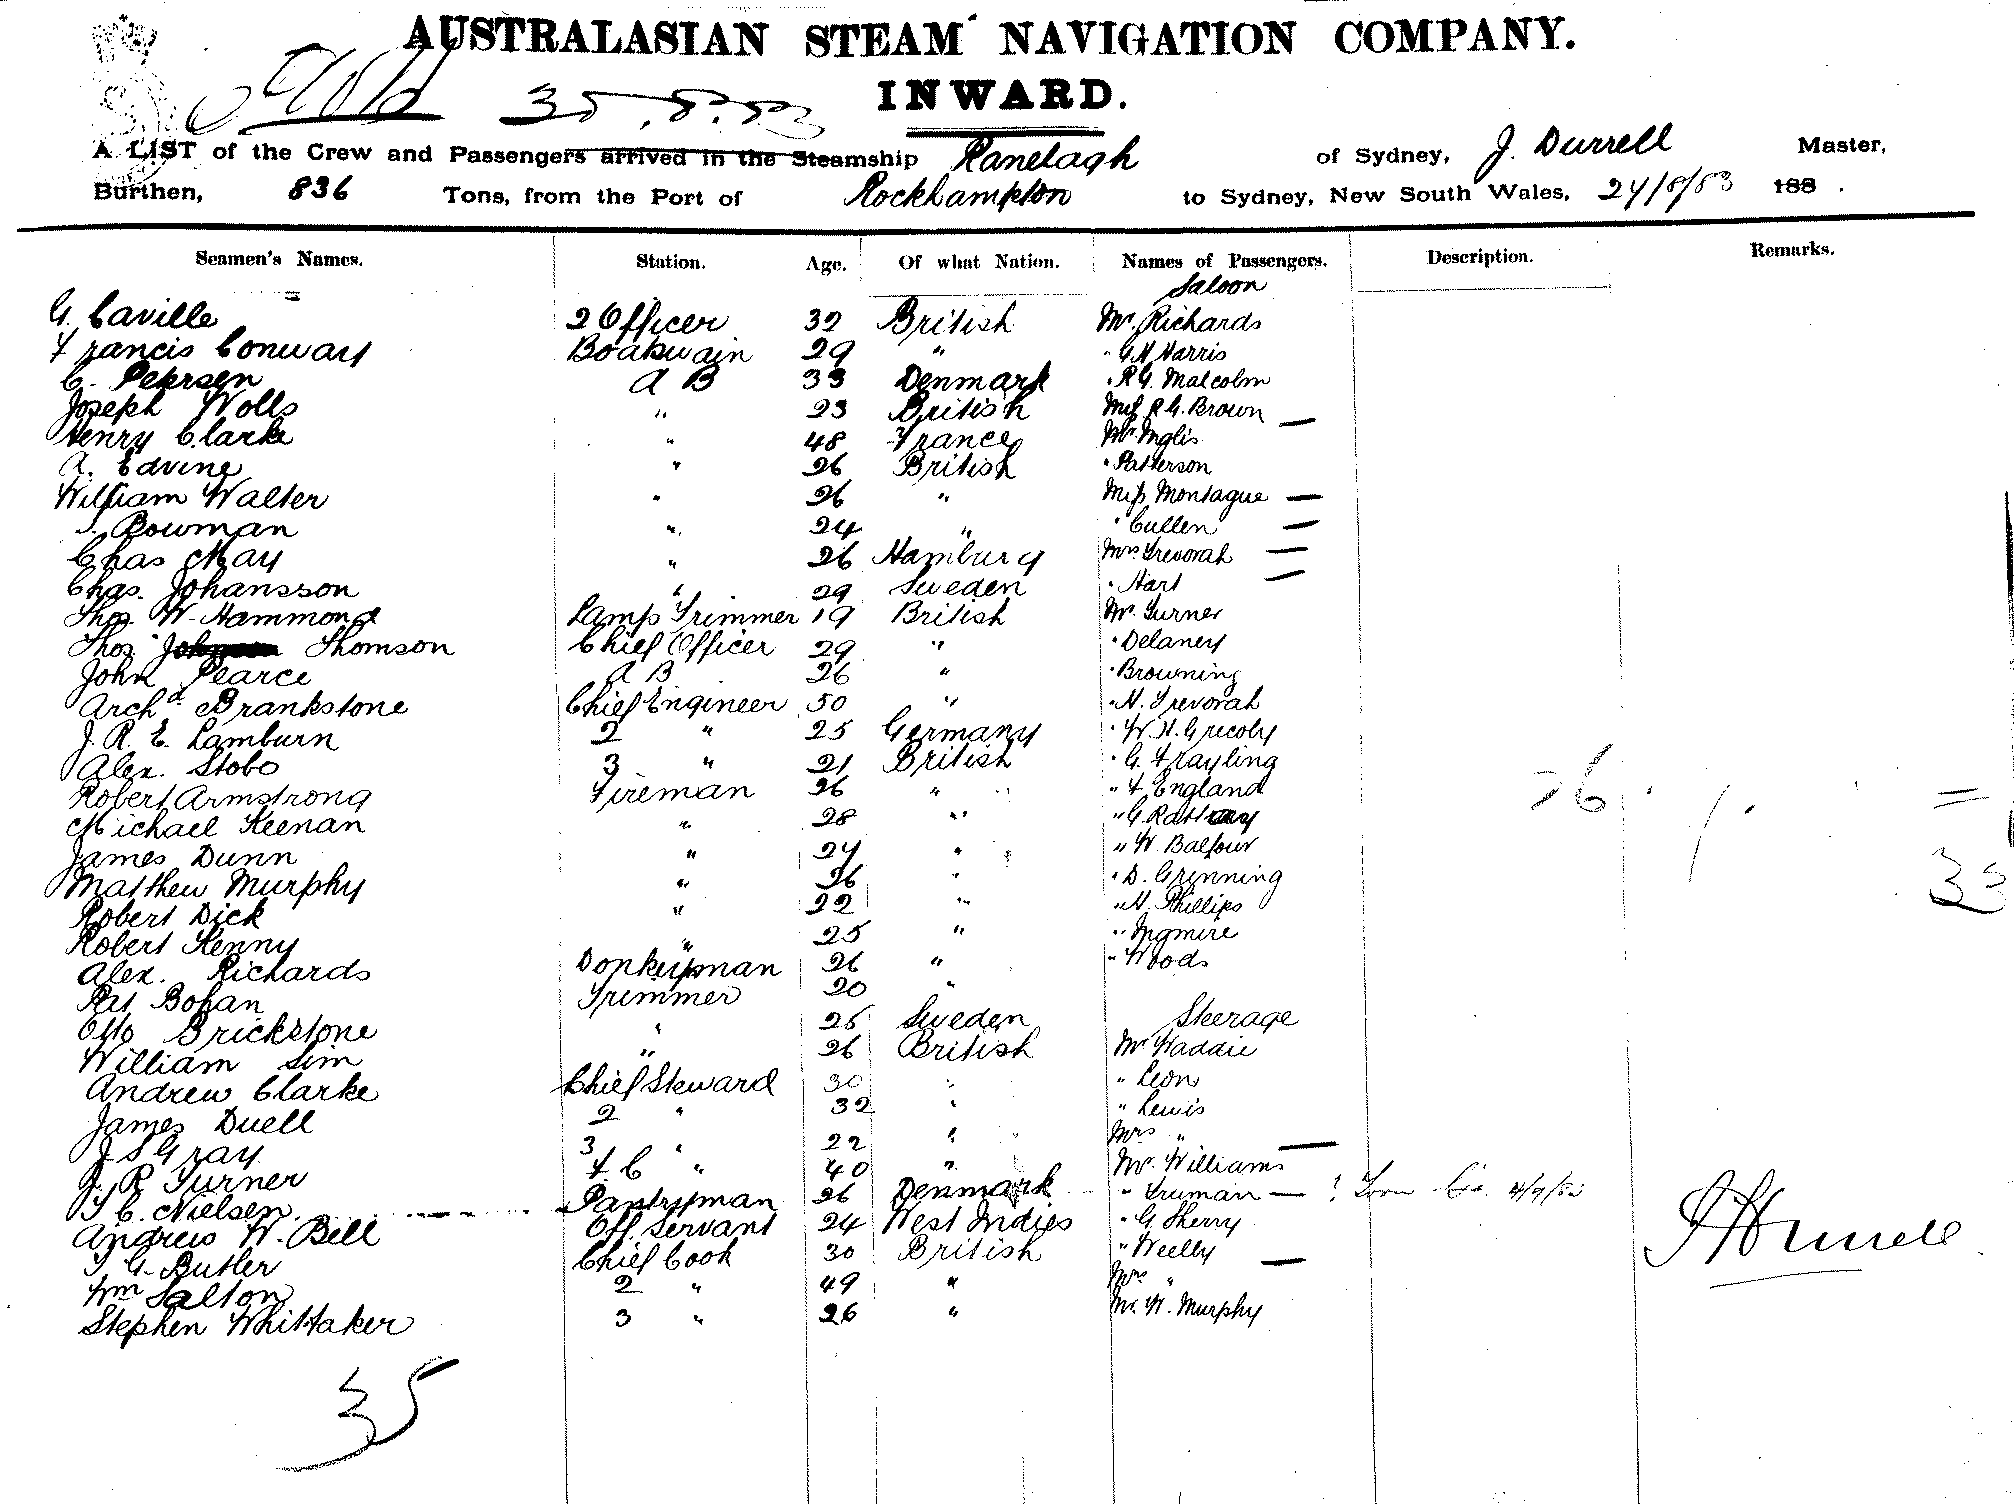 AUSTRALASIAN STEAM NAVIGATION COMPANY.
INWARD.
A LIST of the Crew and Passengers arrived in the Steamship Ranelagh of Sydney, J. Durrell Master,
Burthen, 836 Tons, from the Port of Rockhampton to Sydney, New South Wales, 24/8/83 188 .
Seamen's Names. Station. Age. Of what Nation. Names of Passengers. Description. Remarks.
Saloon
G. Caville 2 Officer 32 British Mr. Richards
Francis Conway Boatswain 29 " " G H Harris
C. Petersen A B 33 Denmark " R G. Malcolm
Joseph Wolls " 23 British Miss R G. Brown —
Henry Clarke " 48 France Mr. Inglis
A. Edvine " 26 British " Patterson
William Walter " 26 " Miss Montague —
Bowman " 24 " " Cullen —
Chas May " 26 Hamburg Mrs Trevorah —
Chas. Johansson " 29 Sweden " Hart —
Thos. W. Hammond Lamp Trimmer 19 British Mr. Turner
Thos Thomson Chief Officer 29 " " Delaney
John Pearce A B 26 " " Browning
Archd Brankstone Chief Engineer 50 " " H. Trevorah
J. R. E. Lamburn 2 " 25 Germany " W. H. Grecoby
Alex. Stobo 3 " 21 British " G. Frayling
Robert Armstrong Fireman 26 " " F England
Michael Keenan " 28 " " G Rattray
James Dunn " 24 " " W. Balfour
Matthew Murphy " 36 " " D. Grenning
Robert Dick " 22 " " H. Phillips
Robert Kenny " 25 " " Ingmire
Alex. Richards Donkeyman 26 " " Woods
Pat Bohan Trimmer 20 "
Otto Brickstone " 25 Sweden Steerage
William Sim " 26 British Mr Waddie
Andrew Clarke Chief Steward 30 " " Leon
James Duell 2 " 32 " " Lewis
J S Gray 3 " 22 " Mrs " —
J. R Turner F C " 40 " Mr. Williams
T C. Nielsen Pantryman 26 Denmark " Truman —
Andrew W. Bell Off. Servant 24 West Indies " G. Sherry
T G. Butler Chief Cook 30 British " Weelby
Wm Salton 2 " 49 " Mrs " —
Stephen Whittaker 3 " 26 " Mr. W. Murphy
35